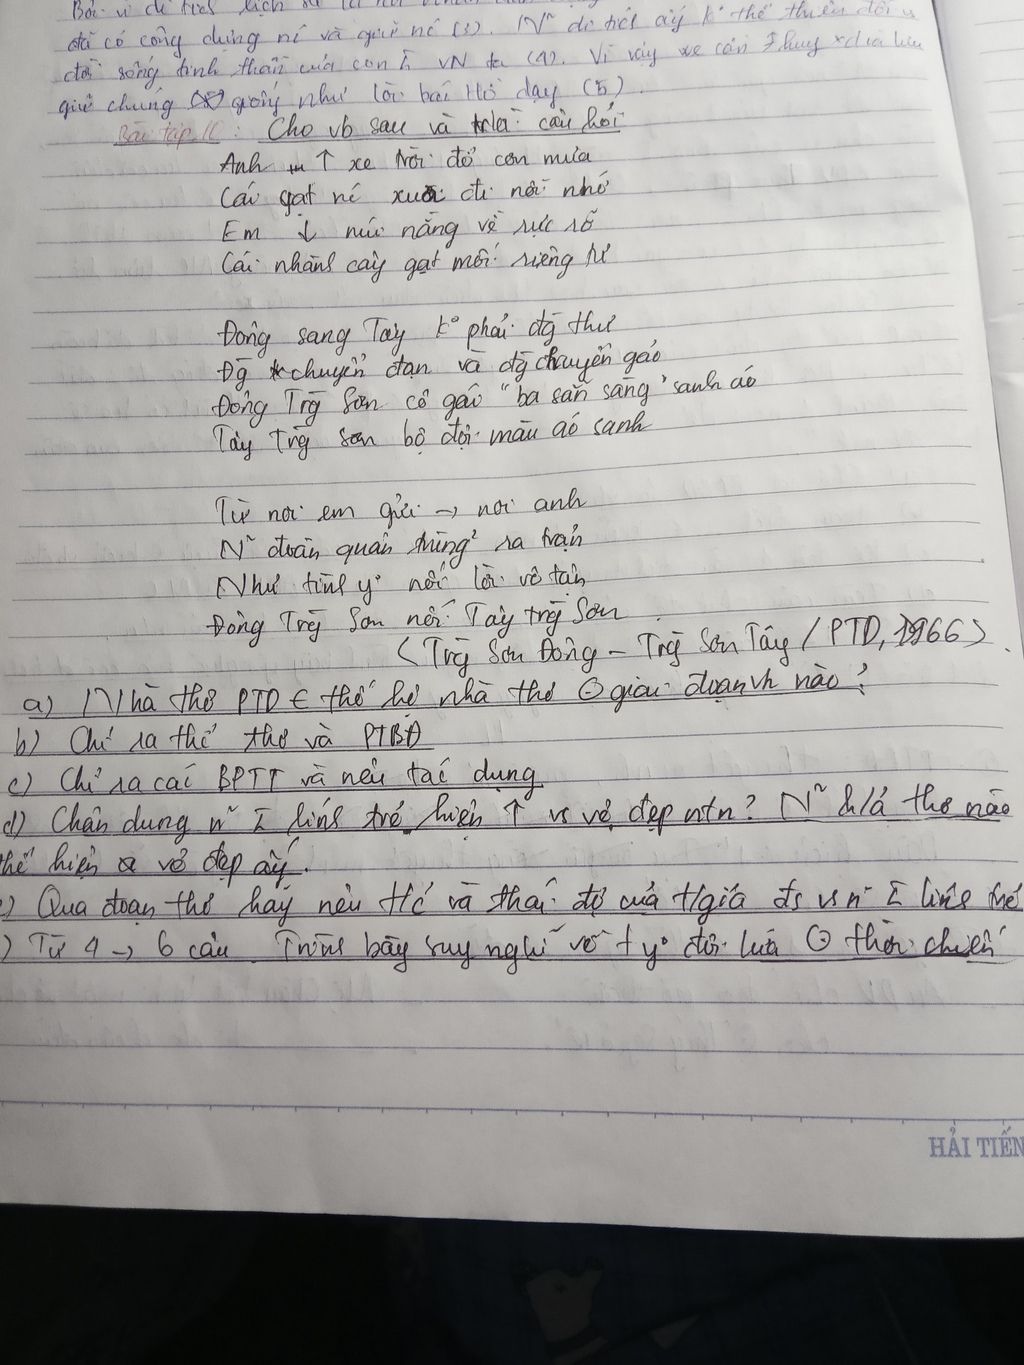 Bởi vì di tích lịch sử là nơi
đã có công dựng nc và giữ nc (3). Nn di tích ấy ko thể thiếu đối
đời sống tinh thần của con VN ta (4). Vì vậy cần
giữ chúng giống như lời bác Hồ dạy (5).
Bài tập 10: Cho vb sau và trlời câu hỏi
Anh ↑ xe trời đổ cơn mưa
Cái gạt nc xua đi nỗi nhớ
Em ↓ núi nắng về rực rỡ
Cái nhành cây gạt mối riêng tư
Đông sang Tây ko phải đg thư
Đg chuyển đạn và đg chuyển gạo
Đông Trg Sơn cô gái "ba sẵn sàng" sanh áo
Tây Trg Sơn bộ đội màu áo sanh
Từ nơi em gửi → nơi anh
Nn đoàn quân trùng2 ra trận
Như tình y nối lời vô tận
Đông Trg Sơn nối Tây trg Sơn
(Trg Sơn Đông - Trg Sơn Tây / PTD, 1966).
a) Nhà thơ PTD ∈ thế hệ nhà thơ giai đoạn vh nào?
b) Chỉ ra thể thơ và PTBĐ
c) Chỉ ra các BPTT và nêu tác dụng
d) Chân dung lính trẻ hiện ↑ vs vẻ đẹp ntn? h/ả thơ nào
thể hiện vẻ đẹp ấy.
) Qua đoạn thơ hãy nêu t/c và thái độ của t/giả đs vs lính trẻ
) Từ 4 → 6 câu Trình bày suy nghĩ về t y đôi lứa thời chiến
HẢI TIẾN